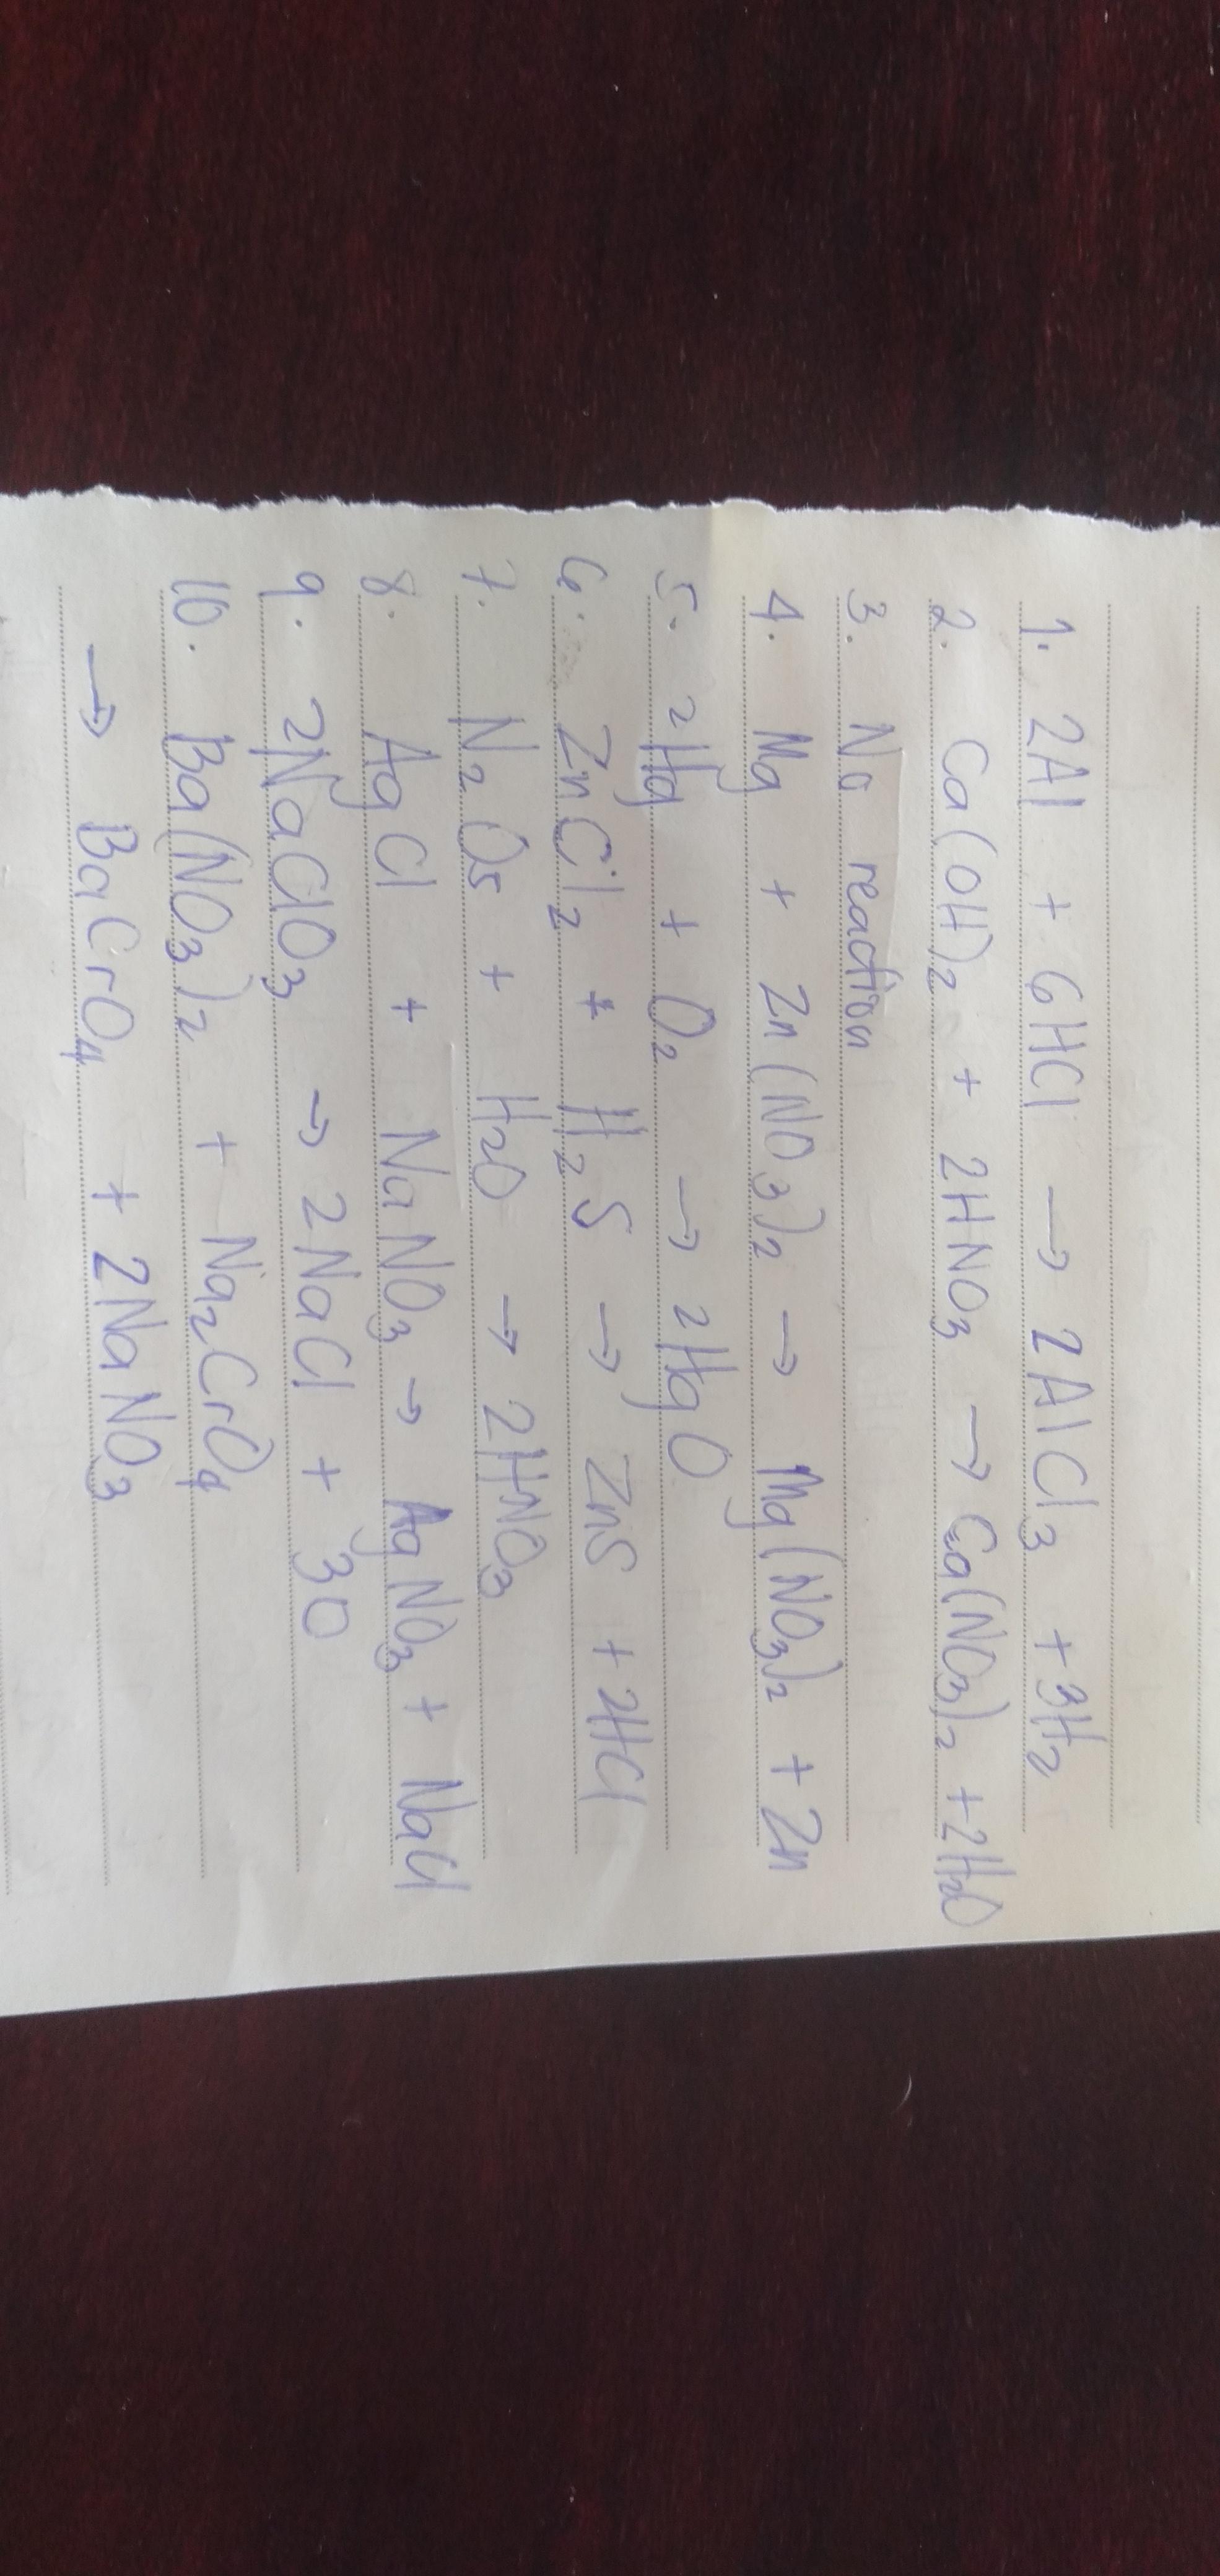 1. 2Al + 6HCl → 2AlCl₃ + 3H₂
2. Ca(OH)₂ + 2HNO₃ → Ca(NO₃)₂ + 2H₂O
3. No reaction
4. Mg + Zn(NO₃)₂ → Mg(NO₃)₂ + Zn
5. 2Hg + O₂ → 2HgO
6. ZnCl₂ + H₂S → ZnS + 2HCl
7. N₂O₅ + H₂O → 2HNO₃
8. AgCl + NaNO₃ → AgNO₃ + NaCl
9. 2NaClO₃ → 2NaCl + 3O
10. Ba(NO₃)₂ + Na₂CrO₄
→ BaCrO₄ + 2NaNO₃